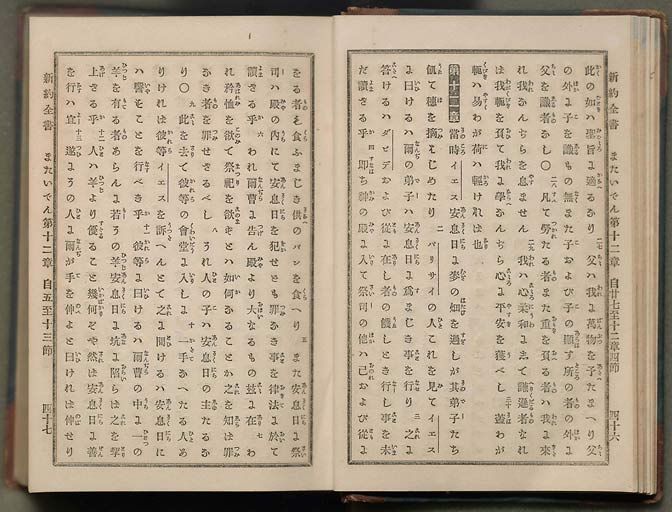 新約全書　またいでん第十二章　自廿七至十二章四節　四十六
此の如ハ聖旨よ適るあり 二七 父ハ我よ萬物を予たまへり父
の外よ子を識もの無また子および子の顯す所の者の外よ
父を識者なし〇 二八 凡て勞たる者また重を負る者ハ我よ來
れ我なんぢらを息ません 二九 我ハ心柔和よして謙遜者なれ
ば我軛を負て我よ學なんぢら心よ平安を獲べし 三十 蓋わが
軛ハ易わが荷ハ輕けれは也
第十二章 當時イエス安息日よ麥の畑を過しが其弟子たち
飢て穗を摘はじめたり 二 パリサイの人これを見てイエス
よ曰けるハ爾の弟子ハ安息日よ爲まじき事を行り 三 之よ
答けるハダビデおよび從よ在し者の饑しとき行し事を未
だ讀ざる乎 四 即ち神の殿よ入て祭司の他ハ己および從よ
をる者も食ふまじき供のパンを食へり 五 また安息日よ祭
司ハ殿の内にて安息日を犯せども罪なき事を律法よ於て
讀ざる乎 六 われ爾曹よ告ん殿より大なるもの茲よ在 七 わ
れ矜恤を欲て祭祀を欲ずとハ如何なることか之を知ば罪
なき者を罪せざるべし 八 それ人の子ハ安息日の主たるな
り〇 九 此を去て彼等の會堂よ入しよ 十 一手なへたる人あ
りければ彼等イエスを訴へんとて之よ問けるハ安息日に
ハ醫すことを行べき乎 十一 彼等よ曰けるハ爾曹の中よ一の
羊を有る者あらんよ若その羊安息日よ坑よ陷らば之を挈
上ざる乎 十二 人ハ羊より優ること幾何ぞや然ば安息日よ善
を行ハ宜 十三 遂よその人よ爾が手を伸よと曰ければ伸せり
新約全書　またいでん第十二章　自五至十三節　四十七